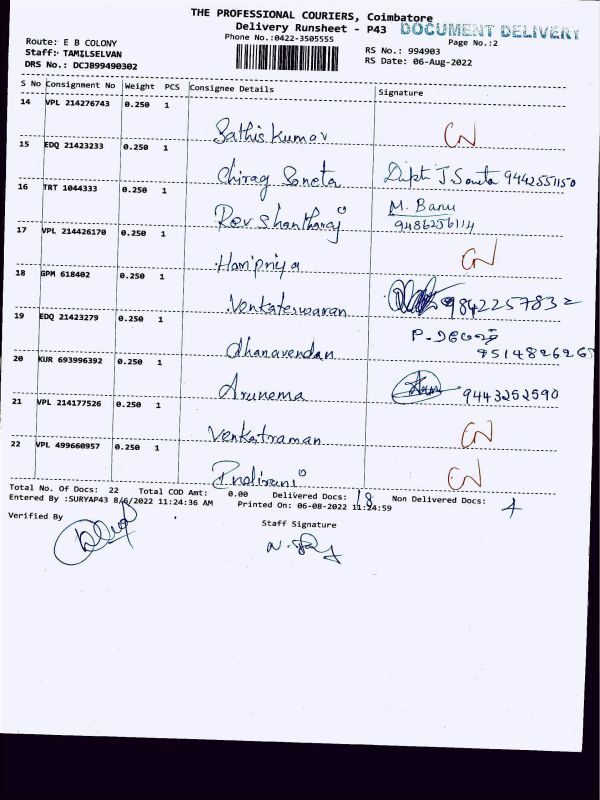 THE PROFESSIONAL COURIERS, Coimbatore
Delivery Runsheet - P43 DOCUMENT DELIVERY
Phone No.:0422-3505555 Page No.:2
Route: E B COLONY RS No.: 994903
Staff: TAMILSELVAN RS Date: 06-Aug-2022
DRS No.: DCJB99490302
S No Consignment No Weight PCS Consignee Details Signature
14 VPL 214276743 0.250 1
Sathiskumar CN
15 EDQ 21423233 0.250 1
Chirag Soneta Dipti J Soneta 9442551150
16 TRT 1044333 0.250 1 M. Banu
Rovshantharaj 9486256114
17 VPL 214426170 0.250 1
Haripriya CN
18 GPM 618402 0.250 1
Venkateswaran 9842257832
19 EDQ 21423279 0.250 1
Dhanavendan 9514826265
20 KUR 693996392 0.250 1
Arunema 9443252590
21 VPL 214177526 0.250 1
Venkatraman CN
22 VPL 499660957 0.250 1
CN
Total No. Of Docs: 22 Total COD Amt: 0.00 Delivered Docs: 18 Non Delivered Docs: 4
Entered By :SURYAP43 8/6/2022 11:24:36 AM Printed On: 06-08-2022 11:24:59
Verified By Staff Signature